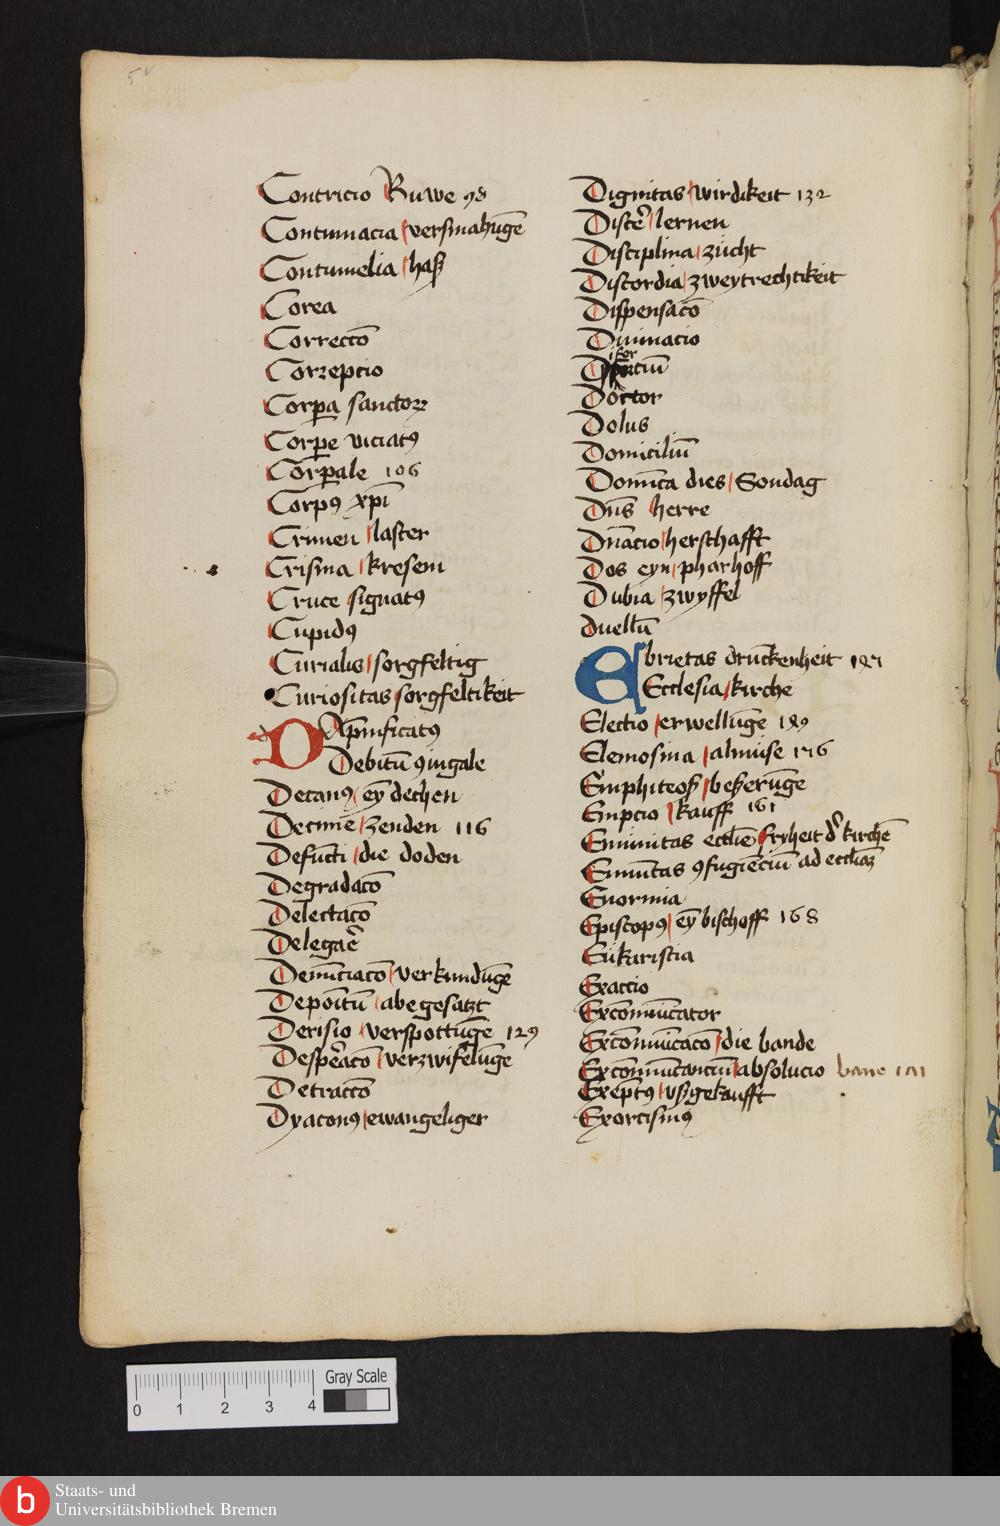 5v
Contricio Ruwe 98
Contumacia versmahũge
Contumelia haß
Corea
Correctõ
Correpcio
Corpa sanctoꝝ
Corpe viciatꝰ
Corꝑale 106
Corpꝰ xpĩ
Crimen laster
Crisma kresem
Cruce signatꝰ
Cupidꝰ
Curialis sorgfeltig
Curiositas sorgfeltikeit
Dapnificatꝰ
Debitũ ꝯiugale
Decanꝰ eỹ dechen
Decime zenden 116
Defũcti die doden
Degradacõ
Delectacõ
Delegaẽ
Denũciacõ verkundũge
Depoĩtũ abegesatzt
Derisio verspottũge 129
Despẽacõ verzwifelũge
Detractõ
Dyaconꝰ ewangeliger
Dignitas wirdikeit 132
Discẽ lernen
Disciplina zücht
Discordia zweytrechtikeit
Dispensacõ
Diuinacio
Doctor
Dolus
Domiciliũ
Domĩca dies Sondag
Dñs herre
Dñacio herschafft
Dos eyn pharhoff
Dubia zwyffel
duellũ
Ebrietas drũckenheit
Ecclesia kirche
Electio erwellũge
Elemosina almüse
Emphiteoẜ beßerũge
Empcio kauff 161
Emunitas ecclie fryheit d' kirchẽ
Emuĩtas ꝯfugiẽciũ ad eccliaʒ
Enormia
Episcopꝰ eỹ bischoff 168
Eukaristia
Exaccio
Excõmũicator
Excõmũicacõ die bande
Excõmũicanciũ absolucio bann
Exẽptꝰ vßgekaufft
Exorcismꝰ
0 1 2 3 4 Gray Scale
b Staats- und
Universitätsbibliothek Bremen